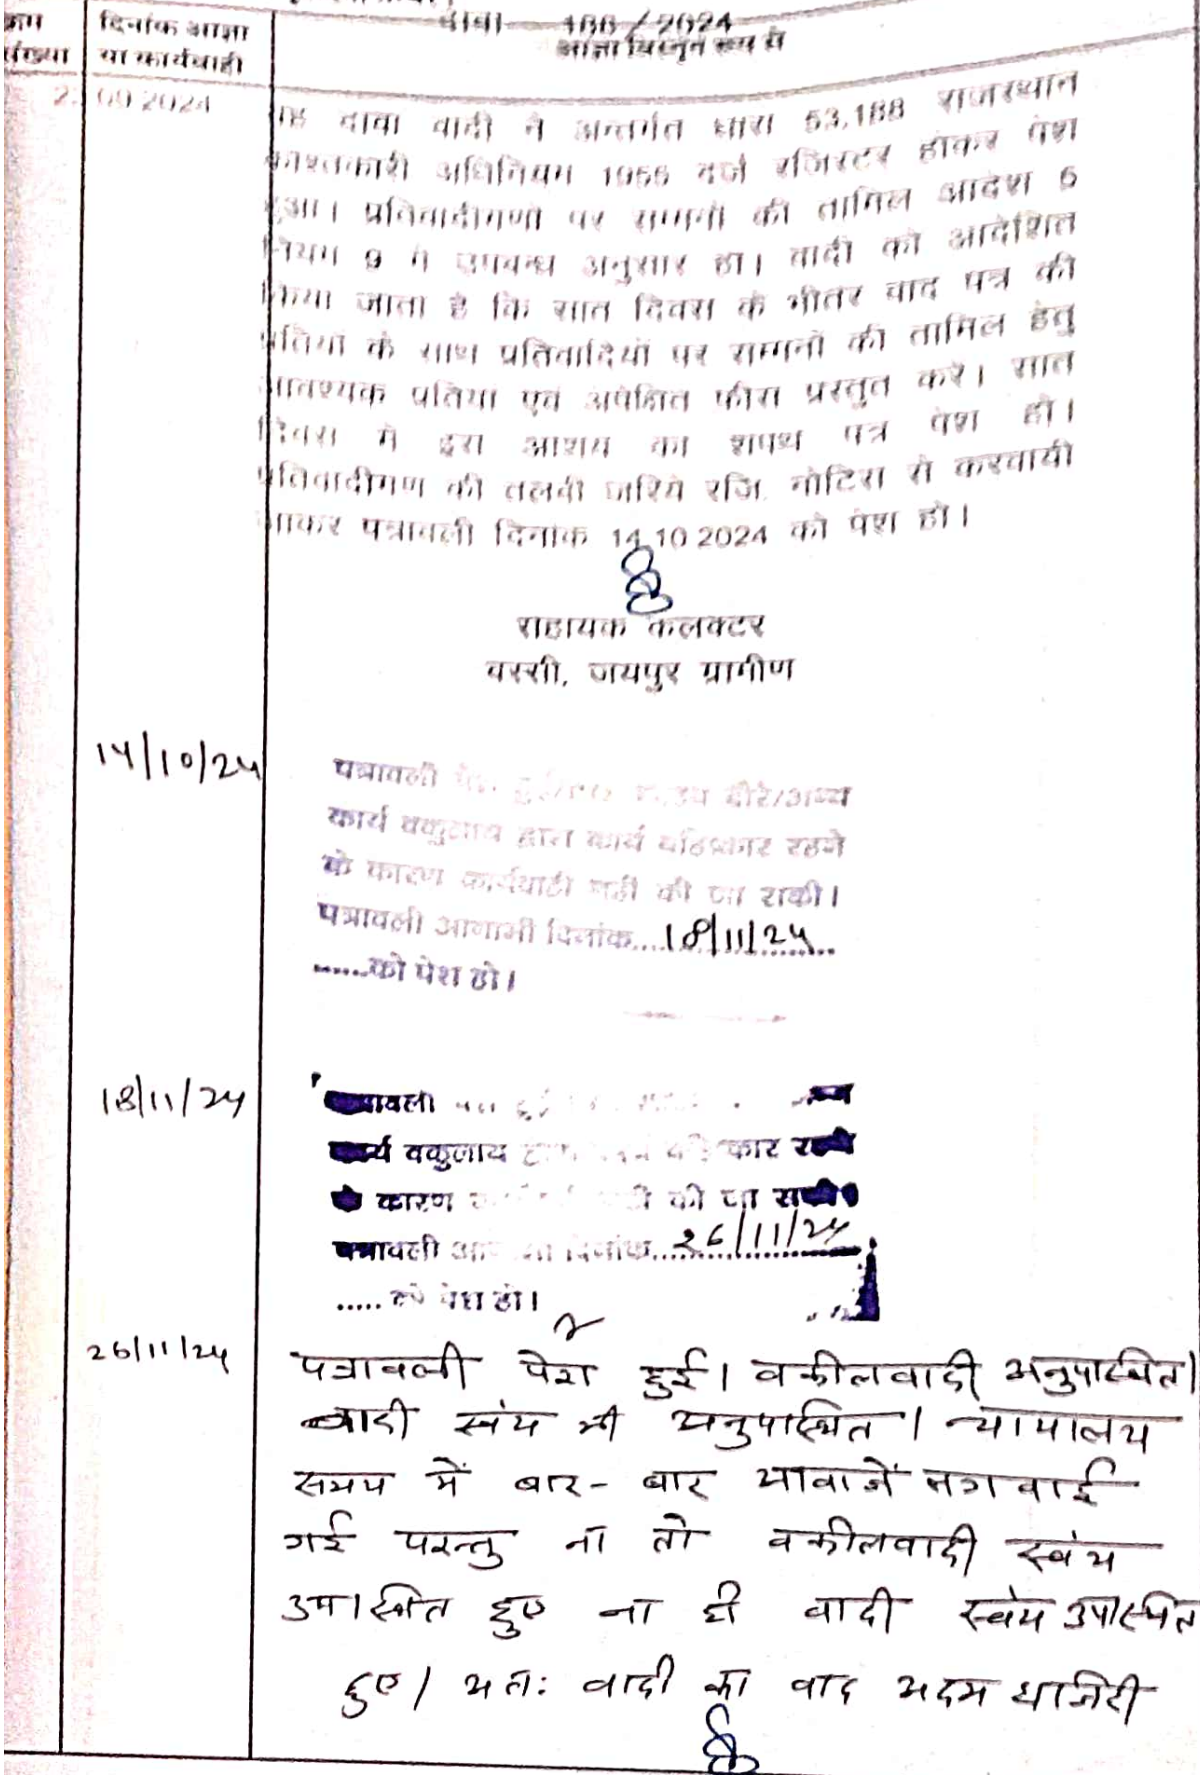 दावा 188/2024
क्रम दिनांक आज्ञा आज्ञा विस्तृत रूप से
संख्या या कार्यवाही
09 2024 यह दावा वादी ने अन्तर्गत धारा 53,188 राजस्थान
काश्तकारी अधिनियम 1955 दर्ज रजिस्टर होकर पेश
हुआ। प्रतिवादीगणों पर सम्मनों की तामिल आदेश 5
नियम 9 में उपबन्ध अनुसार हो। वादी को आदेशित
किया जाता है कि सात दिवस के भीतर वाद पत्र की
प्रतियों के साथ प्रतिवादियों पर सम्मनों की तामिल हेतु
आवश्यक प्रतिया एवं अपेक्षित फीस प्रस्तुत करे। सात
दिवस में इस आशय का शपथ पत्र पेश हो।
प्रतिवादीगण की तलबी जरिये रजि. नोटिस से करवायी
जाकर पत्रावली दिनांक 14.10.2024 को पेश हो।
सहायक कलक्टर
बस्सी, जयपुर ग्रामीण
14/10/24
पत्रावली पेश हुई दौरे/अन्य
कार्य वकुलाय द्वारा कार्य बहिष्कार रहने
के कारण कार्यवाही नहीं की जा सकी।
पत्रावली आगामी दिनांक....18/11/24..
......को पेश हो।
18/11/24
पत्रावली पेश हुई
कार्य वकुलाय द्वारा कार्य बहिष्कार रहने
के कारण कार्यवाही नहीं की जा सकी।
पत्रावली आगामी दिनांक...26/11/24
..... को पेश हो।
26/11/24 पत्रावली पेश हुई। वकीलवादी अनुपस्थित।
वादी स्वंय भी अनुपस्थित। न्यायालय
समय में बार-बार आवाजें लगवाई
गई परन्तु ना तो वकीलवादी स्वंय
उपस्थित हुए ना ही वादी स्वंय उपस्थित
हुए। अतः वादी का वाद अदम हाजिरी